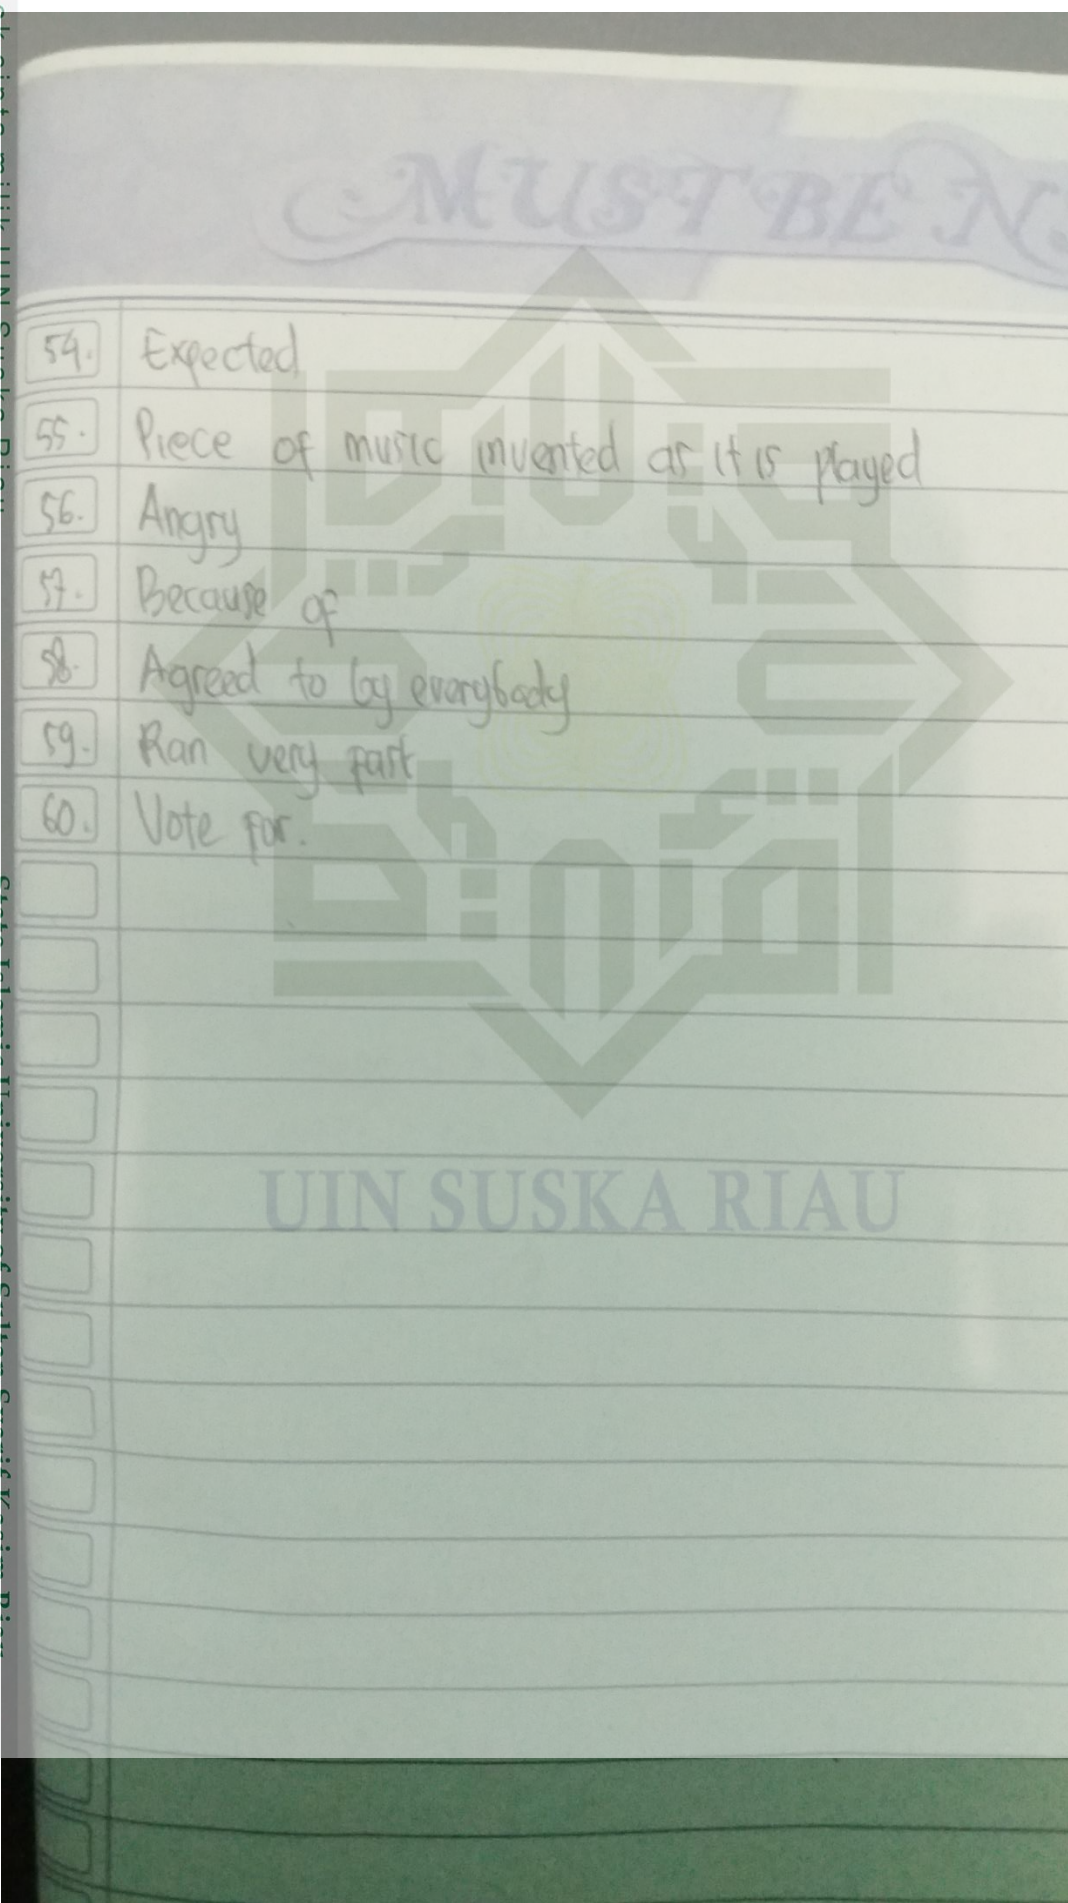 MUST BE N
54. Expected
55. Piece of music invented as it is played
56. Angry
57. Because of
58. Agreed to by everybody
59. Ran very fast
60. Vote for.
UIN SUSKA RIAU